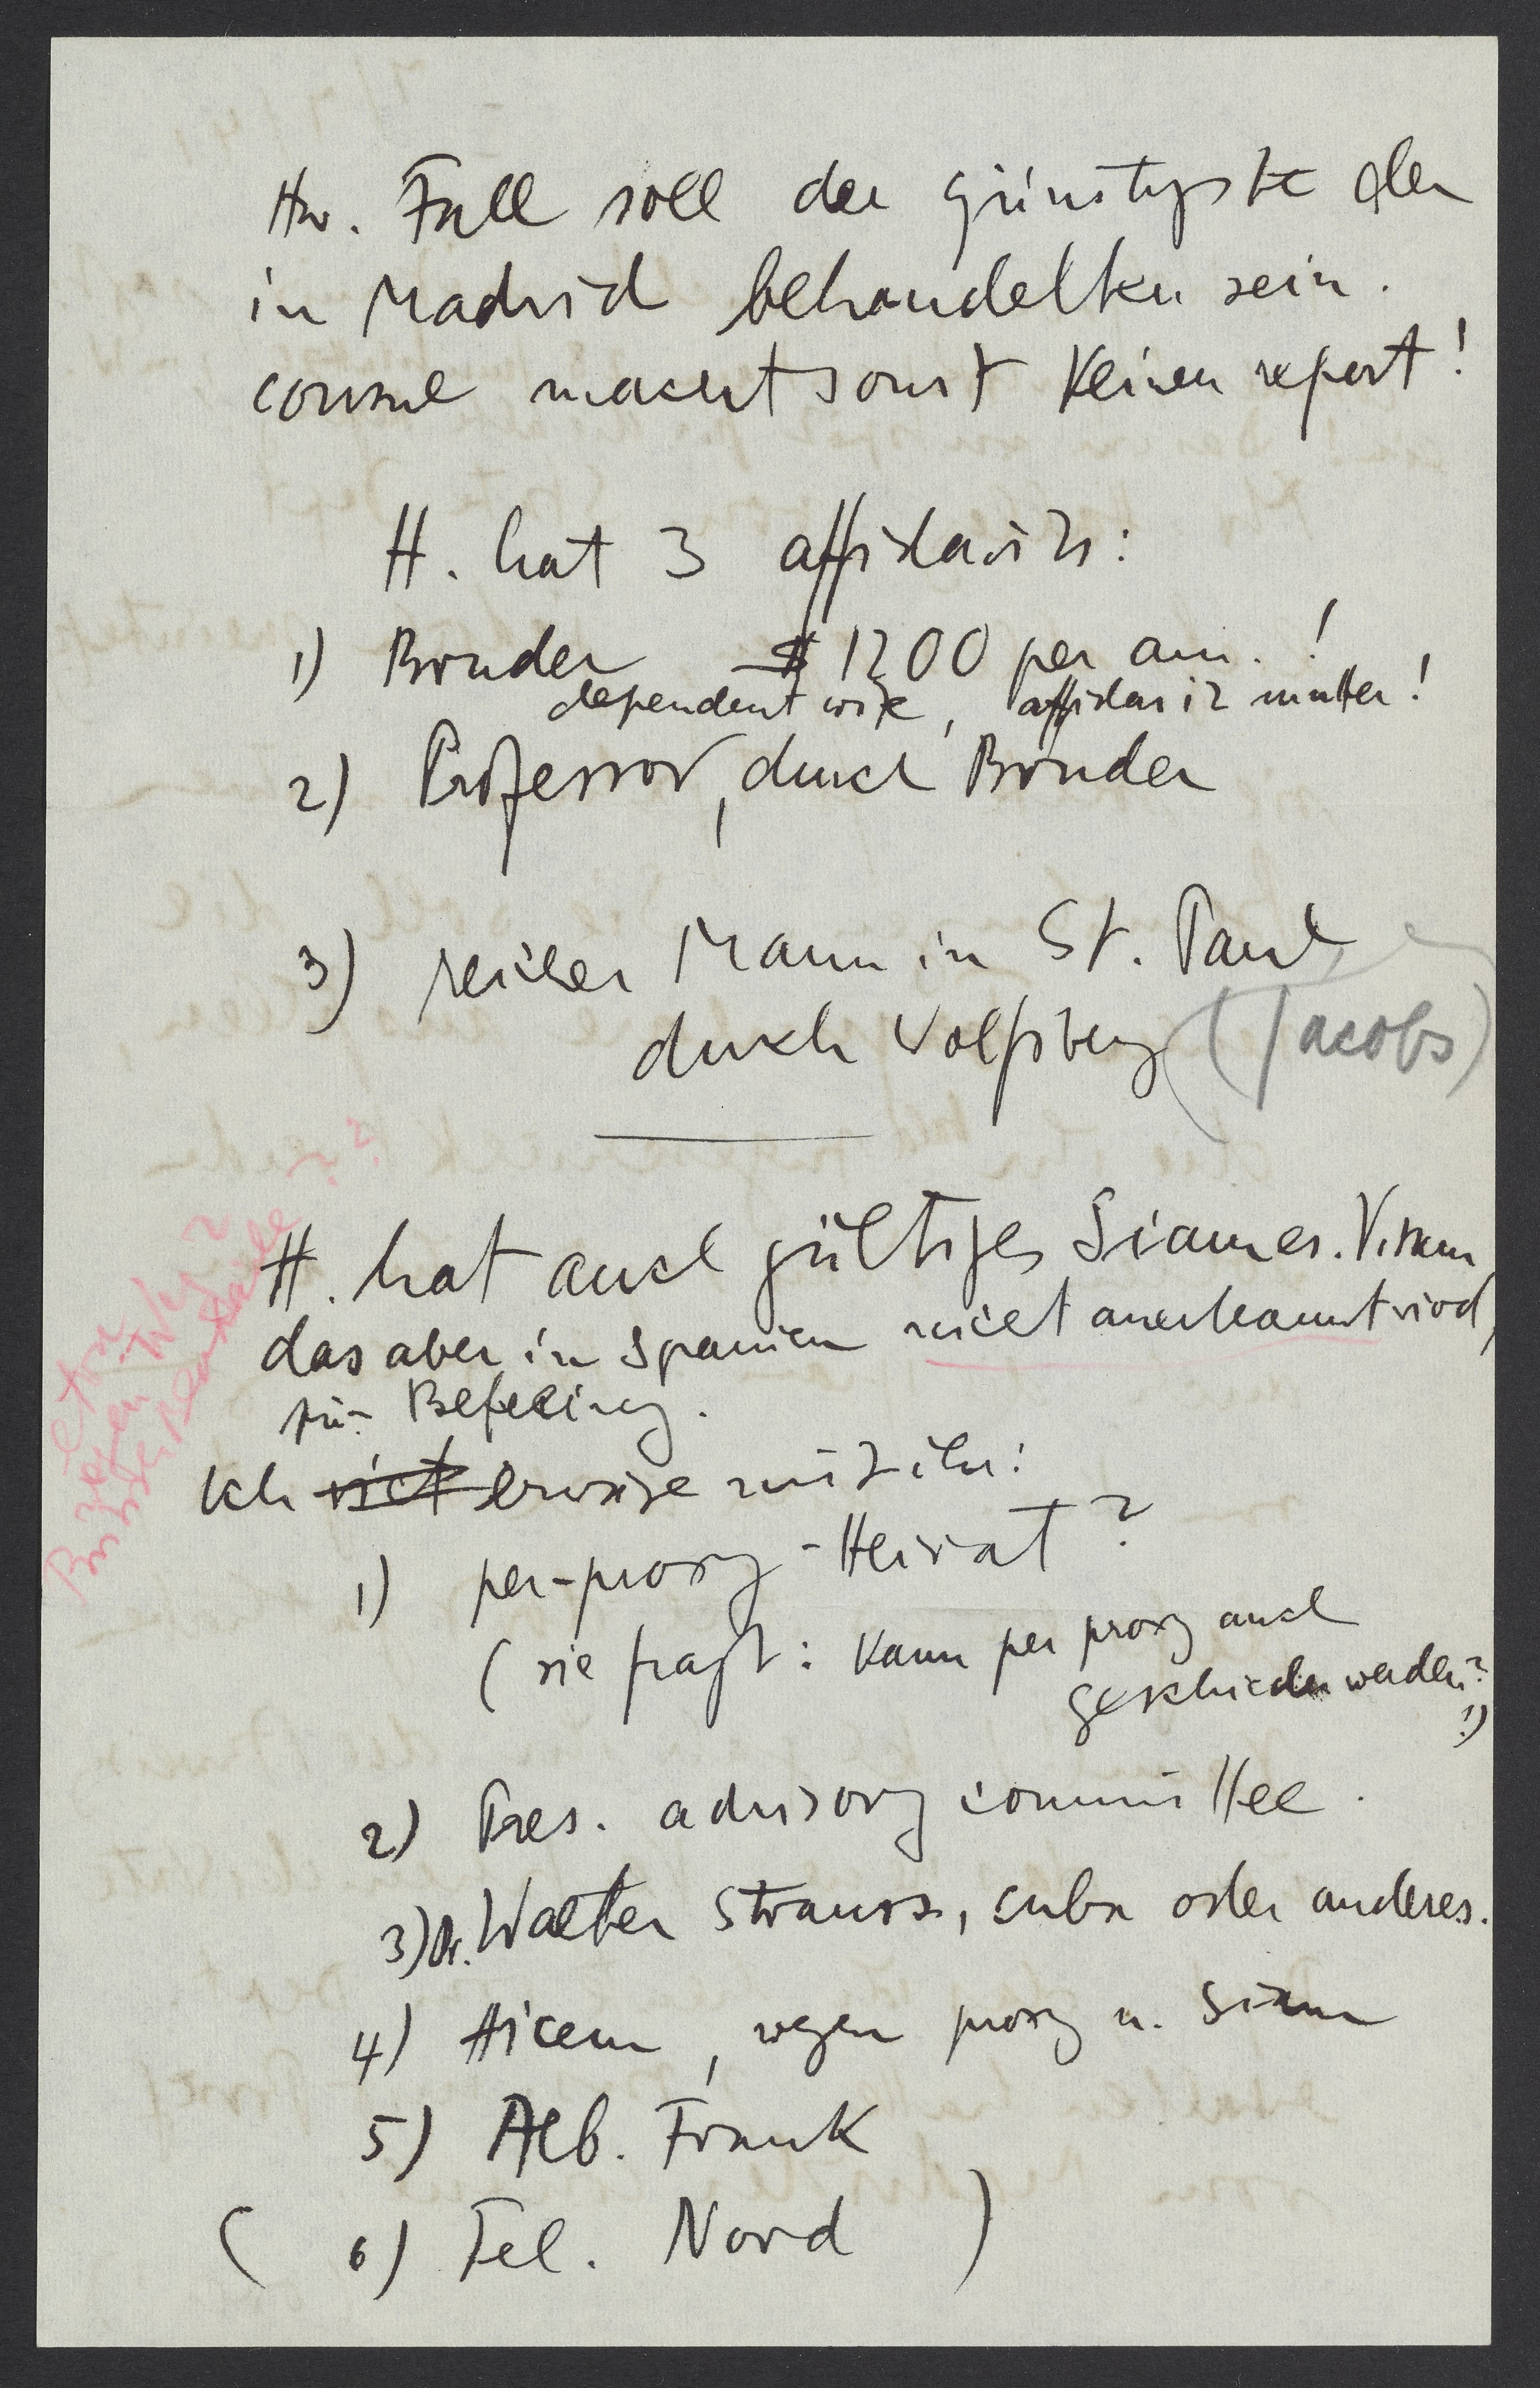 Hs. Fall soll der günstigste der
in Madrid behandelten sein.
consul macht sonst keinen report!
H. hat 3 affidavits:
1) Bruder $ 1200 per ann. !
dependent wife, affidavit mutter!
2) Professor, durch Bruder
3) reicher Mann in St. Paul
durch Wolfsberg (Jacobs)
H. hat auch gültiges Siames. Visum,
das aber in Spanien nicht anerkannt wird,
für Befreiung.
Ich erwäge mit ihr:
1) per-proxy-Heirat?
(sie fragt: kann per proxy auch
geschieden werden?
!)
2) Pres. advisory committee.
3) Dr. Walter Strauss, cuba oder anderes.
4) Hicem, wegen proxy u. Siam
5) Alb. Frank
( 6) Tel. Nord )